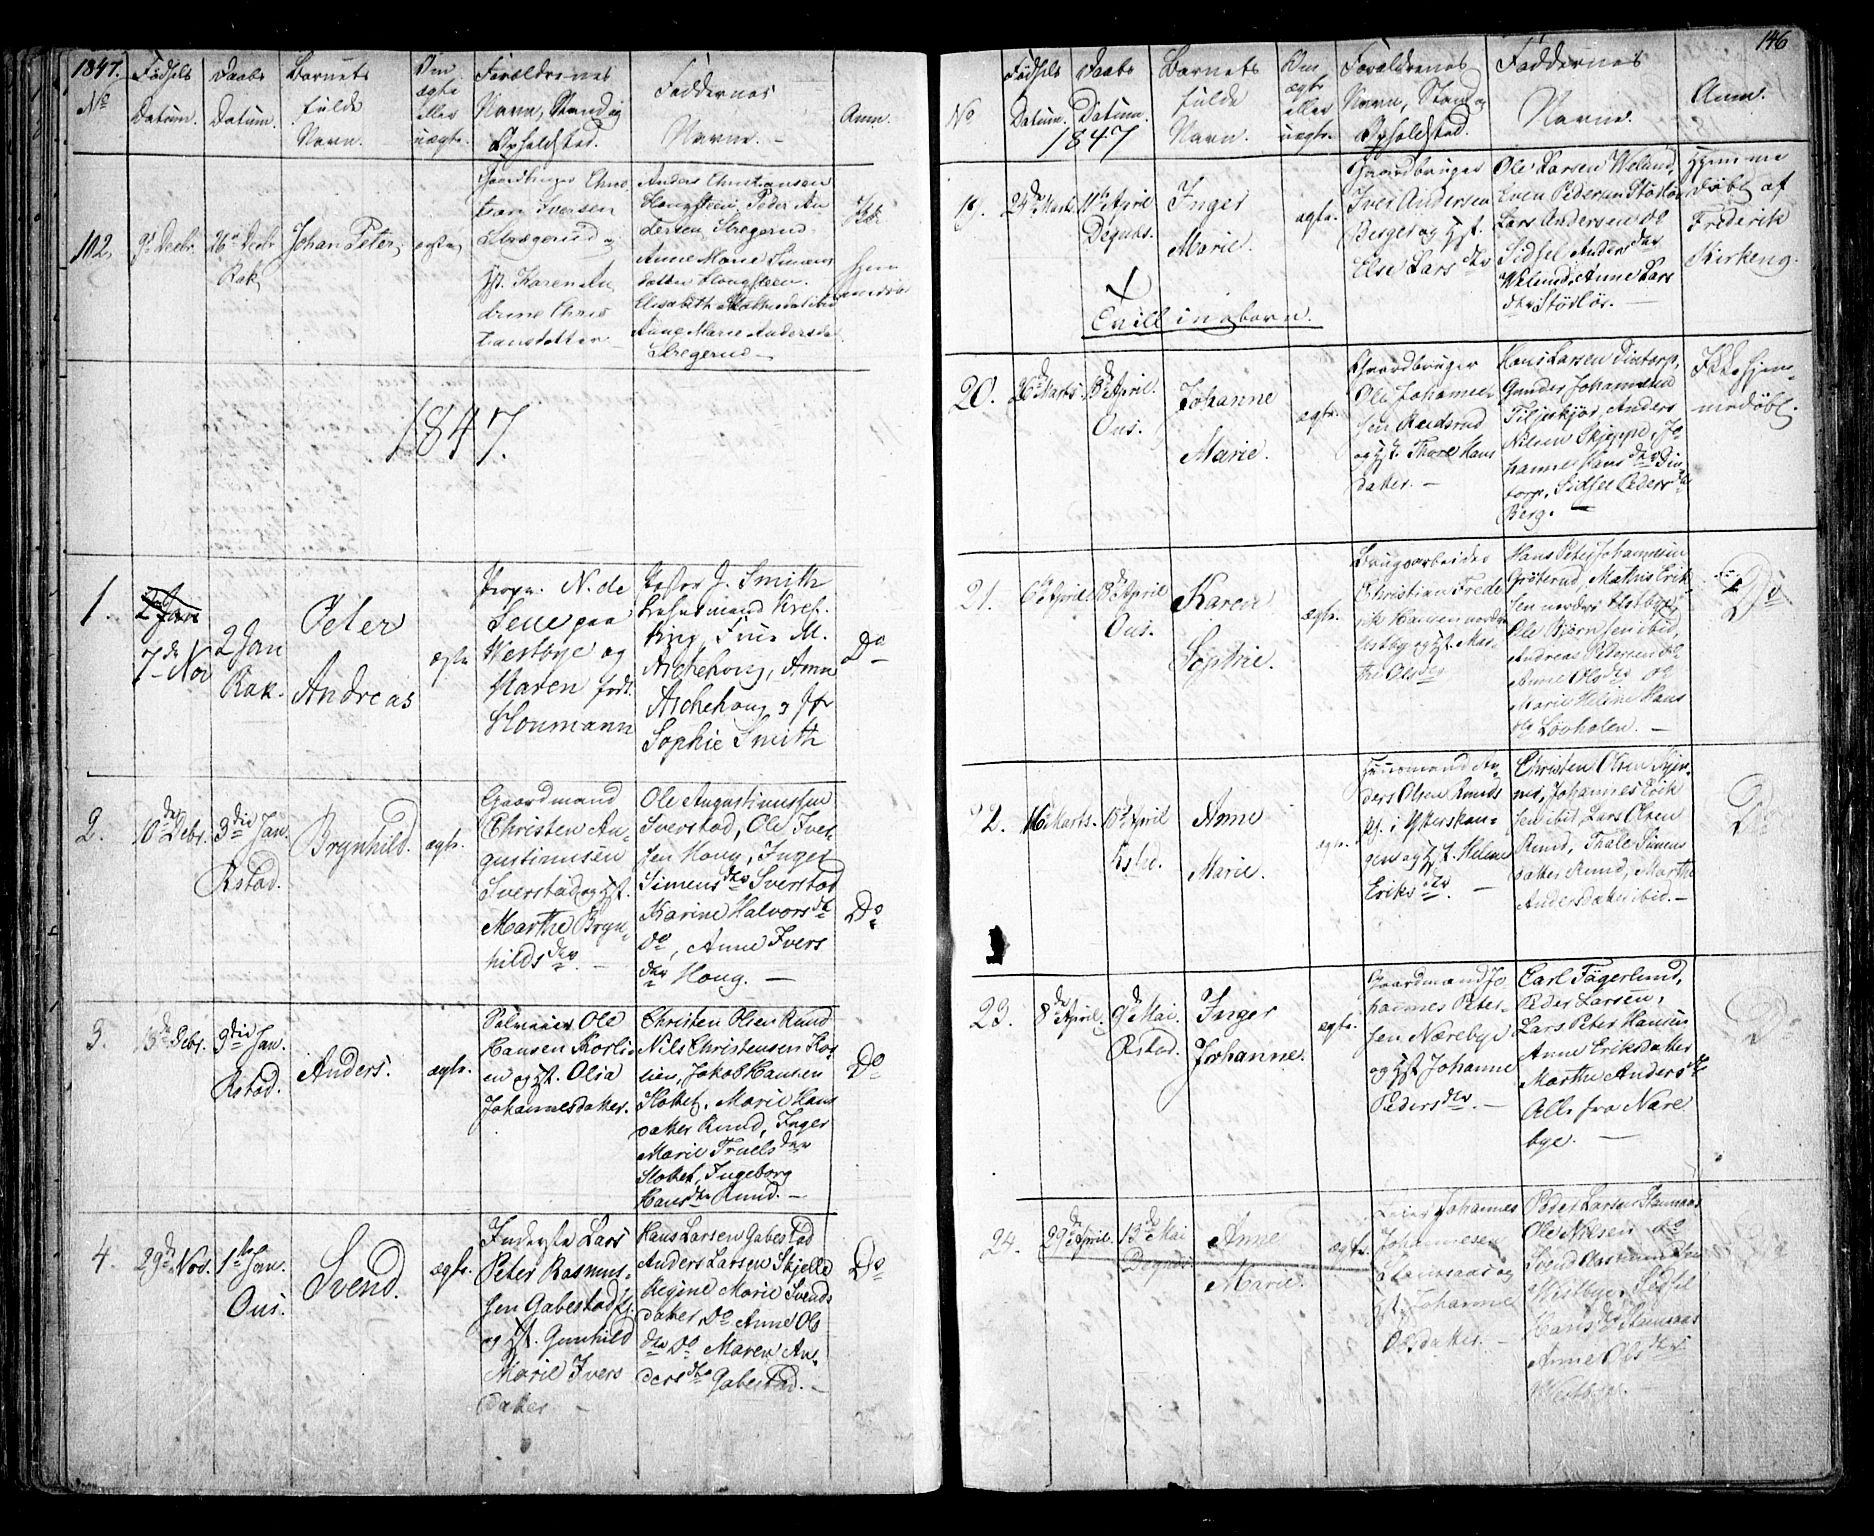 1847.
No
Fødsels
Datum.
Daabs
Datum.
Barnets
fulde
Navn.
Om
ægte
eller
uægte.
Forældrenes
Navn, Stand og
Opholdsted.
Faddernes
Navne. -
Anm.
102.
9de Decbr
26de Decbr
Rak
Johan Peter,
ægte,
Gaardbruger Chris
tian Iversen
Stregerud og
Hst. Karen An
drine Chris
tiansdatter -
Anders Christiansen
Haugsteen, Peder An
dersen Stregerud
Anne Marie Simens
datter Haugsteen.
Elisabeth
Anne Marie Andersda
Stregerud -
Hjem
1847.
1.
2 Jan
7de Nov
2 Jan
Rak.
Peter
Andreas
ægte
Propr. N. de
Seue paa
Westbye og
Maren født
Houmann
Pastor J. Smith
Lehnsmand Kref.
ting, Frue M.
Aschehoug, Anne
Aschehoug og Jfr
Sophie Smith
Do
2.
10de Debr.
3die Jan.
Rstad.
Brynhild.
ægte.
Gaardmand
Christen Au-
gustinusen
Sverstad og Hst.
Marthe Bryn-
hildsdtr. -
Ole Augustinussen
Sverstad, Ole Iver
sen Houg, Inger
Simensdtr Sverstad
Karine Halvorsdtr
Do, Anne Ivers
dtr Houg. -
Do
3.
13de Debr.
3die Jan.
Rstad.
Anders.
ægte.
Ole
Hansen Korsli
en og Hst. Olia
Johannesdatter.
Christen Olsen Rund
Nils Christensen Kors
lien, Jakob Hansen
Slottet, Marie Hans
datter Rund, Inger
Marie Truelsdtr
Slottet, Ingeborg
Hansdtr Rund. -
Do
4.
29de Nov.
1ste Jan.
Ous.
Svend.
ægte.
Inderste Lars
Peter Rasmus-
sen Gabestad Ej.
og Hst. Gunhild
Marie Ivers
datter -
Hans Larsen Gabestad
Anders Larsen Skjelle
Regine Marie Svends
datter Do Anne Ols
dtr Do Maren An-
dersdtr Gabestad. -
Do
146
No
Fødsels
Datum.
Daabs
Datum.
1847
Barnets
fulde
Navn.
Om
ægte
eller
uægte.
Forældrenes
Navn, Stand og
Opholdsted.
Faddernes
Navne.
Anm.
19.
24de Marts
11te April
Degnæs.
Inger
Marie.
ægte.
Gaardbruger
Iver Andersen
Berger og Hst.
Else Larsdtr
Ole Larsen Welund,
Even Pedersen Stødlør
Lars Andersen og
Sidsel Andersdtr
Welund, Anne Lars
dtr Stødlør. -
Hjemme
døbt af
Frederik
Kirkeng.
Tvillingbarn.
20.
26de Marts.
18de April.
Ous.
Johanne
Marie.
ægte.
Gaardbruger
Ole Johannes
sen Rudsrud
og Hst. Thore Hans
datter. -
Hans Larsen Dintorp,
Gunder Johannesen
Tiljeskjør, Anders
Nilsen Skjeppe, Jo
hannes Hansdtr Din
torp, Sidsel Pedersdtr
Berg. -
Ikke hjem-
medøbt.
21.
6te April
18de April
Ous.
Karen
Sophie.
ægte.
Brugsarbeider
Christian Frede
rik Hansen nordre
Hstbye og Hst. Mar-
the Olsdtr
Hans Peter Johannesen
Grøterud, Mathis Erik
sen nordre Hstbye,
Ole Bjørnsen ibid,
Andreas Petersen Do
Anne Olsdtr og
Marie Heline Hans
dtr Lovholen. -
Do
22.
16de Marts.
18de April
Rstd.
Anne
Marie.
ægte.
Huusmand An-
ders Olsen Runds
Ej. i Ytterskau-
gen og Hst. Helene
Eriksdtr. -
Christen Olsen Stjer-
nes, Johannes Erik
sen ibid, Lars Olsen
Rund, Thale Simens
datter Rund, Marthe
Andersdatter ibid. -
Do
23.
8de April.
9de Mai.
Rstad.
Inger
Johanne.
ægte.
Gaardmand Jo
hannes Peter-
sen Nærebye
og Hst Johanne
Pedersdtr. -
Carl Fagerlund,
Peder Larsen,
Lars Peter Hansen
Anne Eriksdatter
Marthe Andersdtr
Alle fra Nære
bye. -
Do
24.
29de April.
13de Mai
Degnæs
Anne
Marie.
ægte.
Johannes
Johannesen
Stamsaas og
Hst. Johanne
Olsdatter. -
Peder Larsen Stamsaas
Ole Nilsen Do
Svend Rasmussen
Westbye, Sidsel
Hansdtr Stamsaas
Anne Olsdtr
Westbye. -
Do